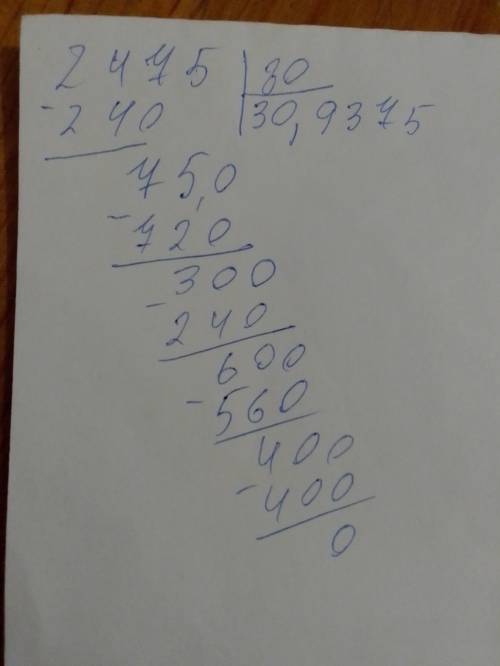 2475 80
-240 30,9375
75,0
-720
300
-240
600
-560
400
-400
0